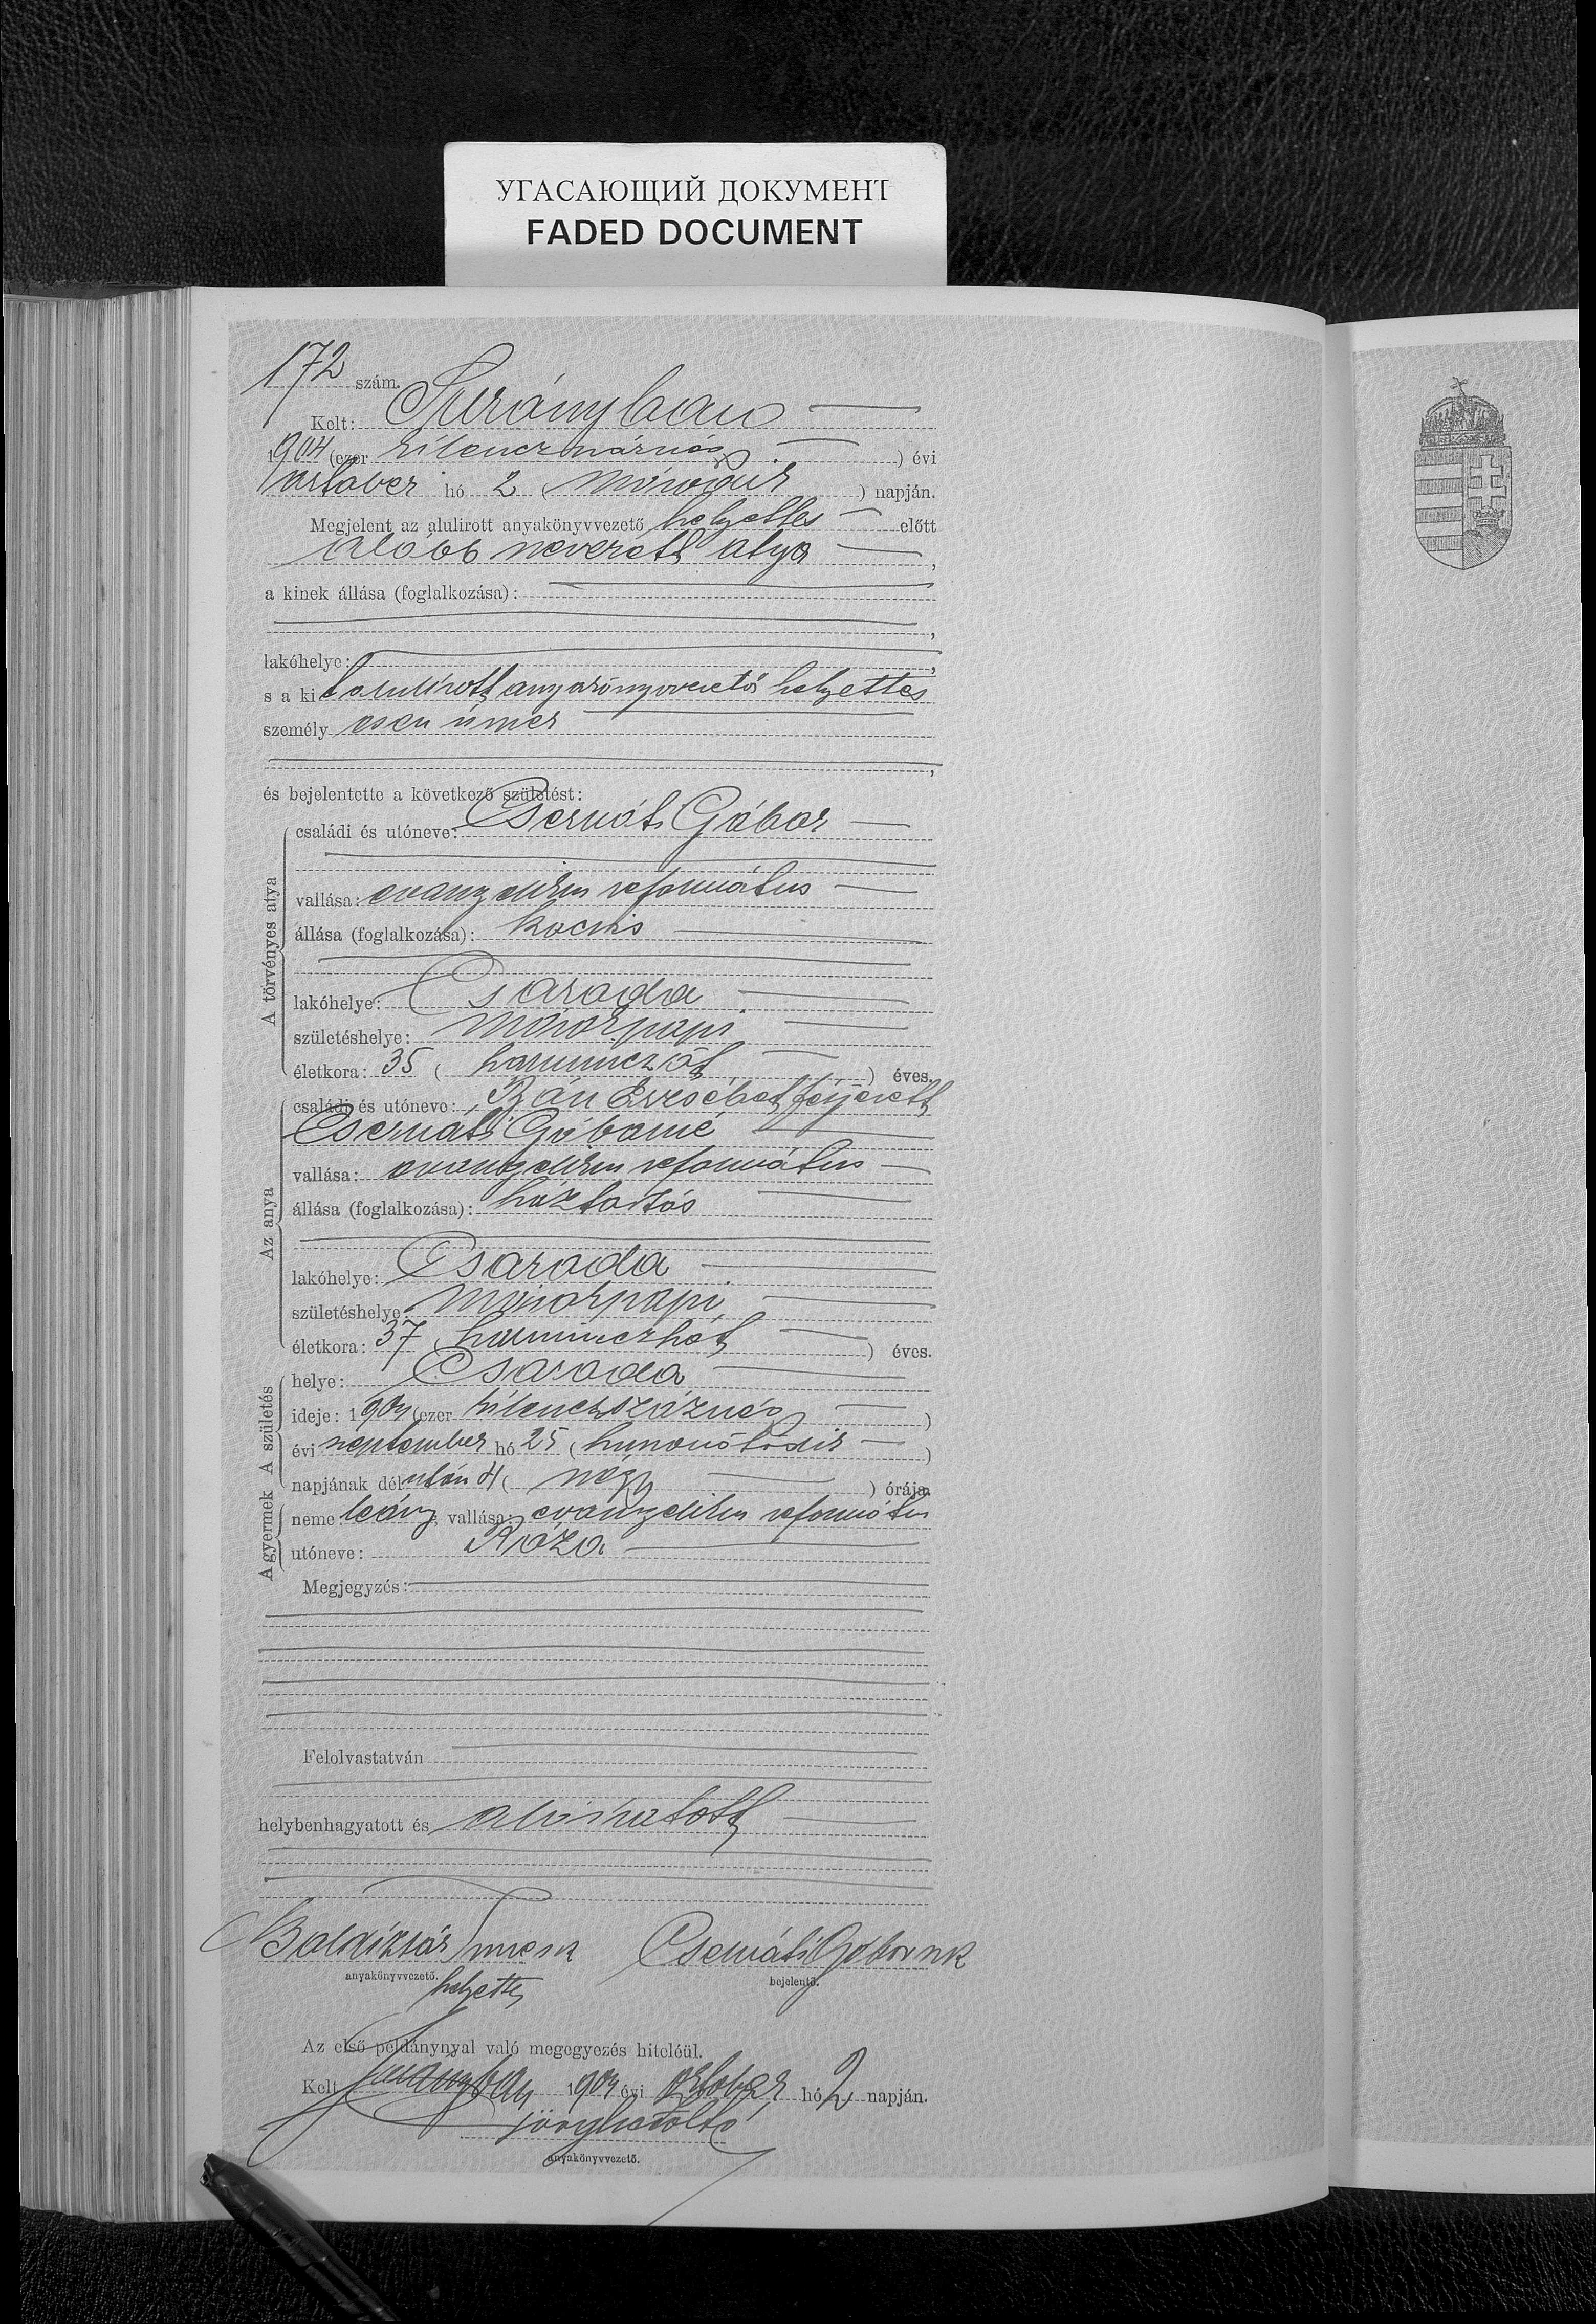 УГАСАЮЩИЙ ДОКУМЕНТ
FADED DOCUMENT
172 szám.
Kelt: Surányban
1904 (ezer kilenczszáznégy) évi
október hó 2 (második) napján.
Megjelent az alulirott anyakönyvvezető helyettes előtt
alább nevezett atya,
a kinek állása (foglalkozása):
,
lakóhelye: ,
s a ki t alulírott anyakönyvvezető helyettes
személyesen ismer
,
és bejelentette a következő születést:
A törvényes atya
családi és utóneve: Csernáti Gábor
vallása: evangelikus református
állása (foglalkozása): kocsis
lakóhelye: Csaroda
születéshelye: Márokpapi
életkora: 35 (harminczöt) éves.
Az anya
családi és utóneve: Bán Erzsébet férjezett
Csernáti Gáborné
vallása: evangelikus református
állása (foglalkozása): háztartás
lakóhelye: Csaroda
születéshelye: Márokpapi
életkora: 37 harminczhét) éves.
A születés
helye: Csaroda
ideje: 1904 (ezer kilenczszáznégy)
évi september hó 25 (huszonötödik)
napjának délután 4 (négy) órája.
A gyermek
neme: leány, vallása: evangelikus református
utóneve: Róza
Megjegyzés:
Felolvastatván
helybenhagyatott és aláíratott
Csernáti Gábor sk
anyakönyvvezető. helyettes
bejelentő.
Az első példánynyal való megegyezés hiteléül.
Kelt Surányban 1904 évi október hó 2 napján.
anyakönyvvezető.